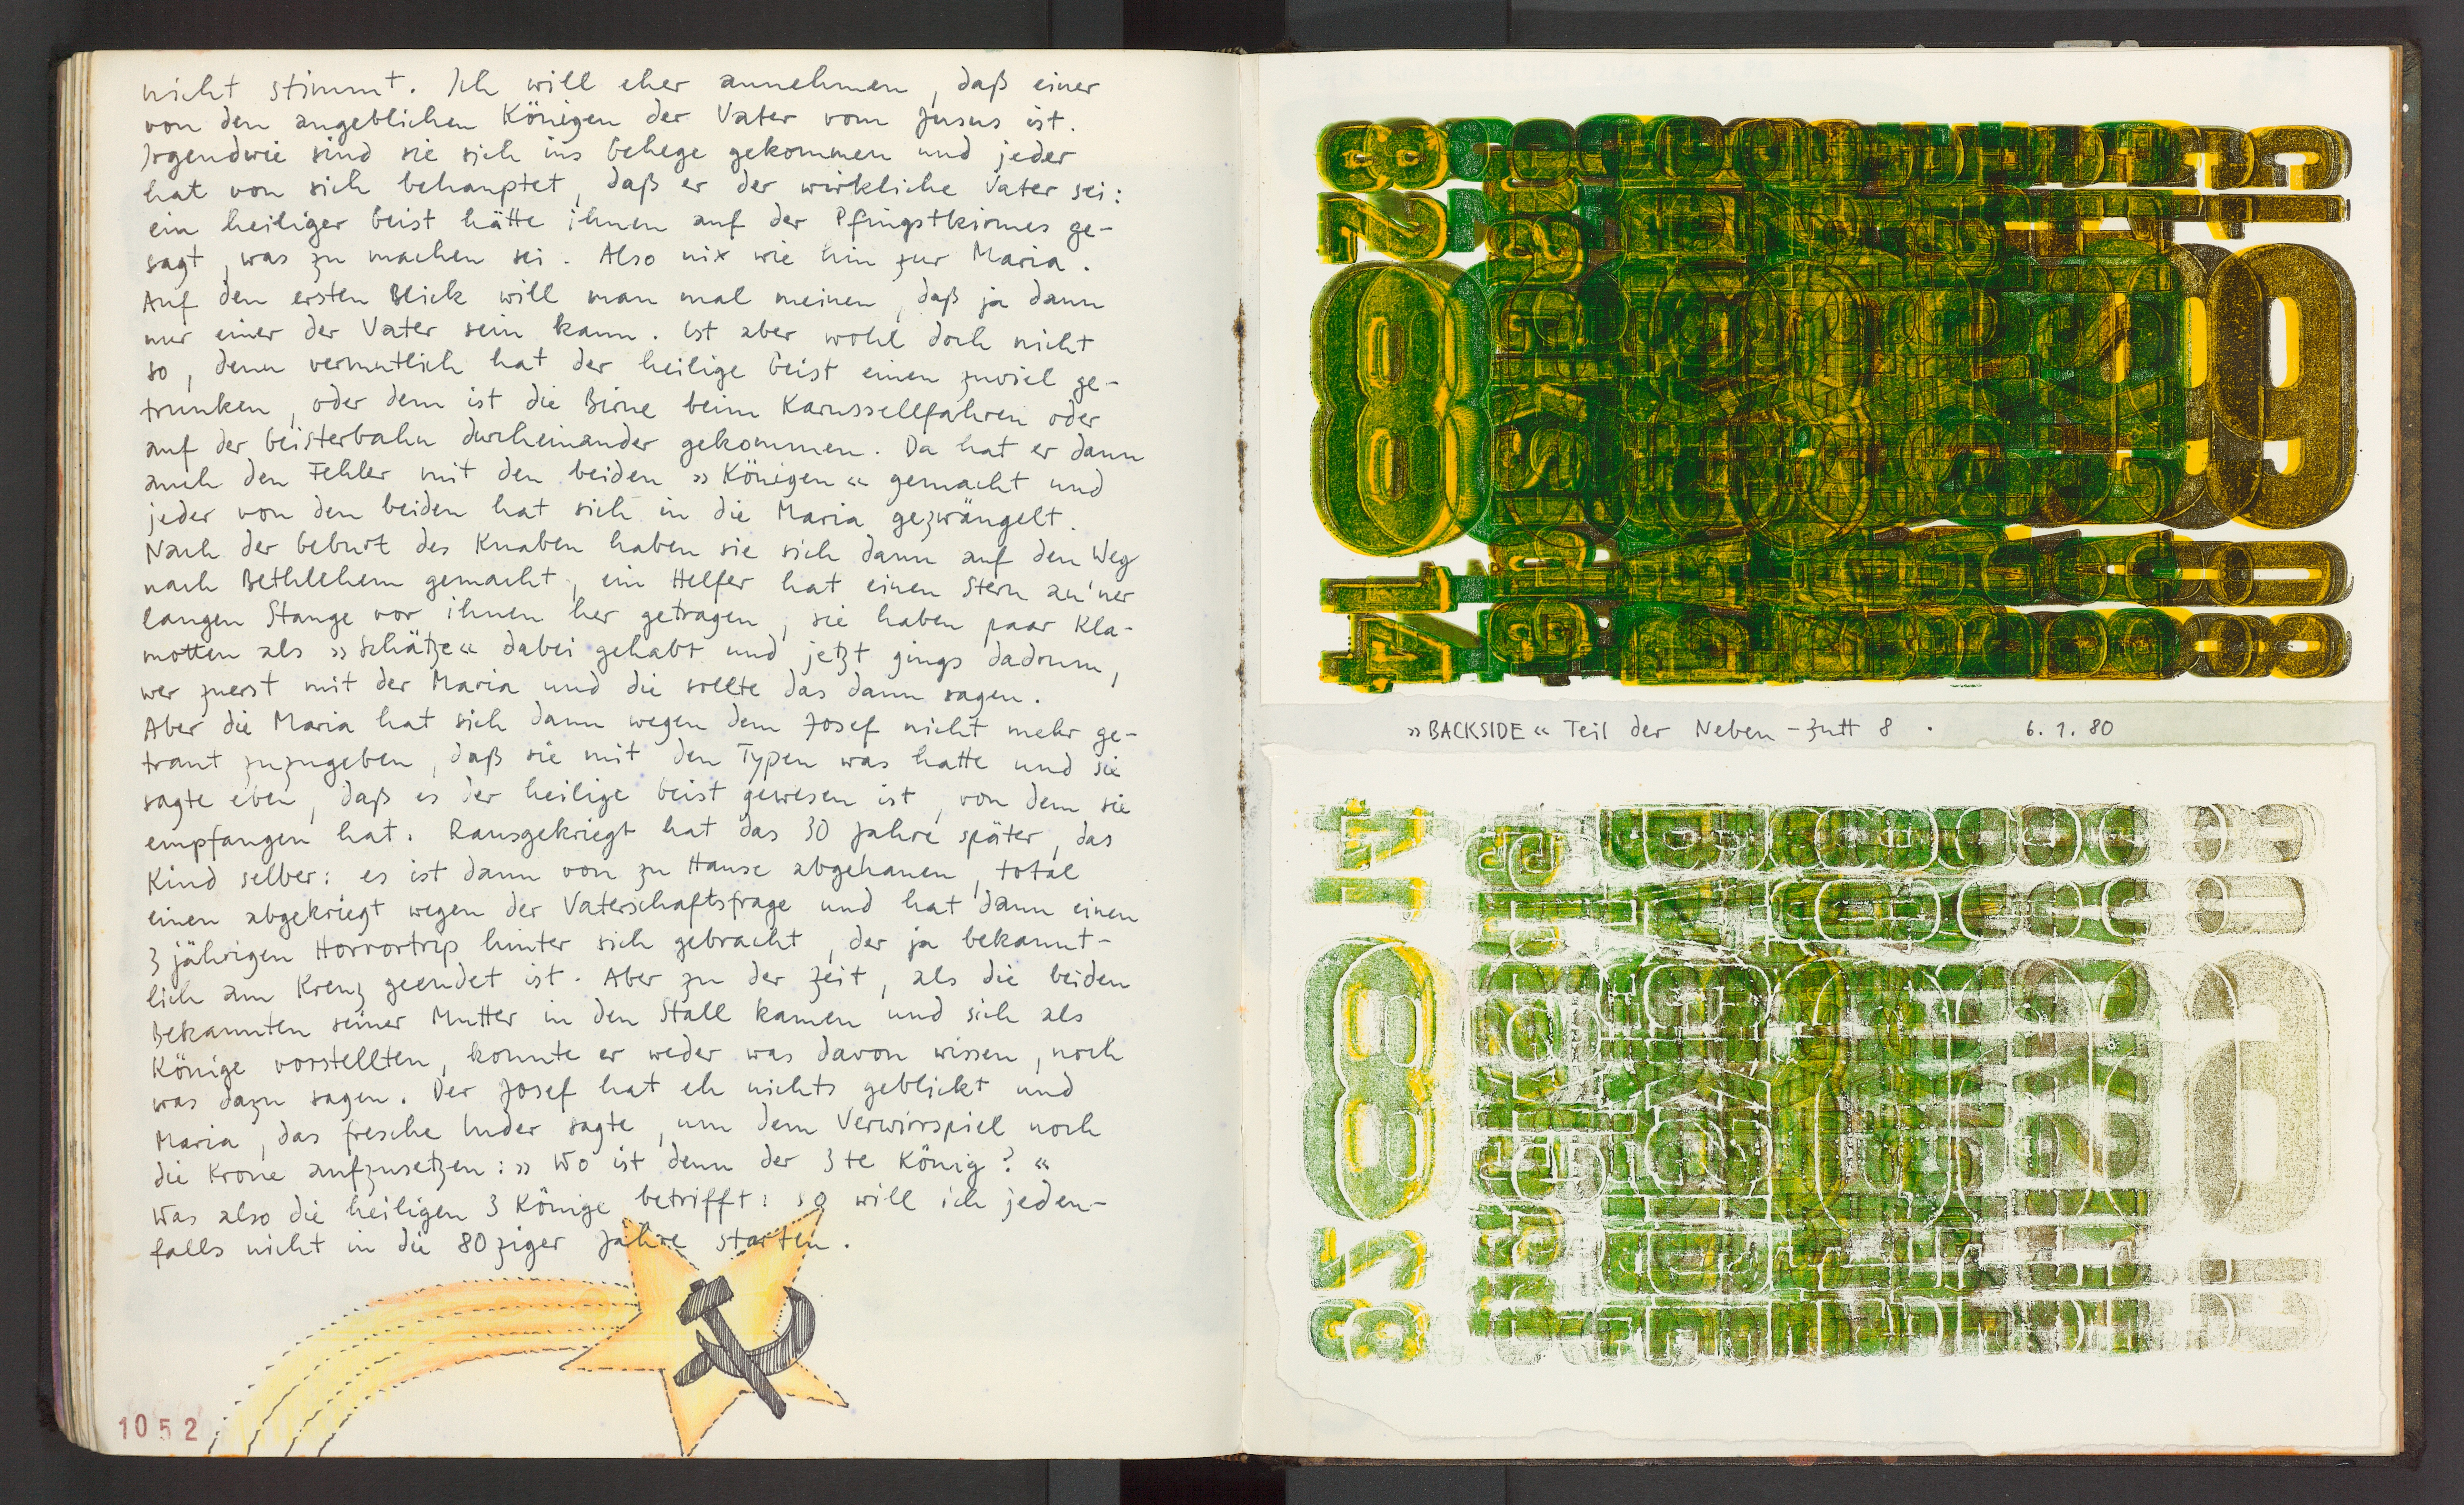 nicht stimmt. Ich will eher annehmen, daß einer
von den angeblichen Königen der Vater vom Jusus ist.
Irgendwie sind sie sich ins Gehege gekommen und jeder
hat von sich behauptet, daß er der wirkliche Vater sei:
ein heiliger Geist hätte ihnen auf der Pfingstkirmes ge-
sagt, was zu machen sei. Also nix wie hin zur Maria.
Auf den ersten Blick will man mal meinen, daß ja dann
nur einer der Vater sein kann. Ist aber wohl doch nicht
so, denn vermutlich hat der heilige Geist einen zuviel ge-
trunken, oder dem ist die Birne beim Karussellfahren oder
auf der Geisterbahn durcheinander gekommen. Da hat er dann
auch den Fehler mit den beiden »Königen« gemacht und
jeder von den beiden hat sich in die Maria gezwängelt.
Nach der Geburt des Knaben haben sie sich dann auf den Weg
nach Bethlehem gemacht, ein Helfer hat einen Stern an'ner
langen Stange vor ihnen her getragen, sie haben paar Kla-
motten als »Schätze« dabei gehabt und jetzt gings dadrum,
wer zuerst mit der Maria und die sollte das dann sagen.
Aber die Maria hat sich dann wegen dem Josef nicht mehr ge-
traut zuzugeben, daß sie mit den Typen was hatte und sie
sagte eben, daß es der heilige Geist gewesen ist, von dem sie
empfangen hat. Rausgekriegt hat das 30 Jahre später, das
Kind selber: es ist dann von zu Hause abgehauen, total
einen abgekriegt wegen der Vaterschaftsfrage und hat dann einen
3 jährigen Horrortrip hinter sich gebracht, der ja bekannt-
lich am Kreuz geendet ist. Aber zu der Zeit, als die beiden
Bekannten seiner Mutter in den Stall kamen und sich als
Könige vorstellten, konnte er weder was davon wissen, noch
was dazu sagen. Der Josef hat eh nichts geblickt und
Maria, das fresche Luder sagte, um dem Verwirrspiel noch
die Krone aufzusetzen: »Wo ist denn der 3te König?«
Was also die heiligen 3 Könige betrifft: so will ich jeden-
falls nicht in die 80ziger Jahre starten.
1052
»BACKSIDE« Teil der Neben-Zutt 8 · 6.1.80